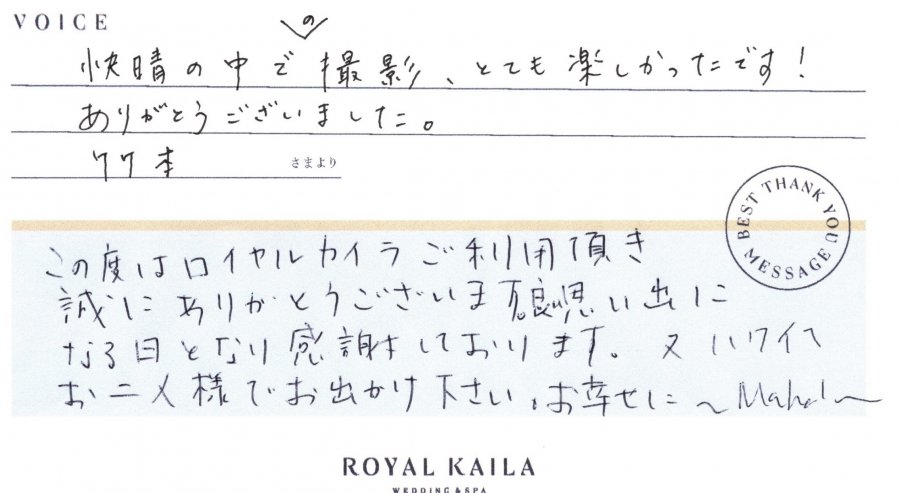 VOICE
快晴の中での撮影、とても楽しかったです!
ありがとうございました。
クワ本 さまより
BEST THANK YOU MESSAGE
この度はロイヤルカイラご利用頂き
誠にありがとうございます。良い思い出に
なる日となり感謝しております。又ハワイへ
お二人様でお出かけ下さい。お幸せに〜
ROYAL KAILA
WEDDING & SPA